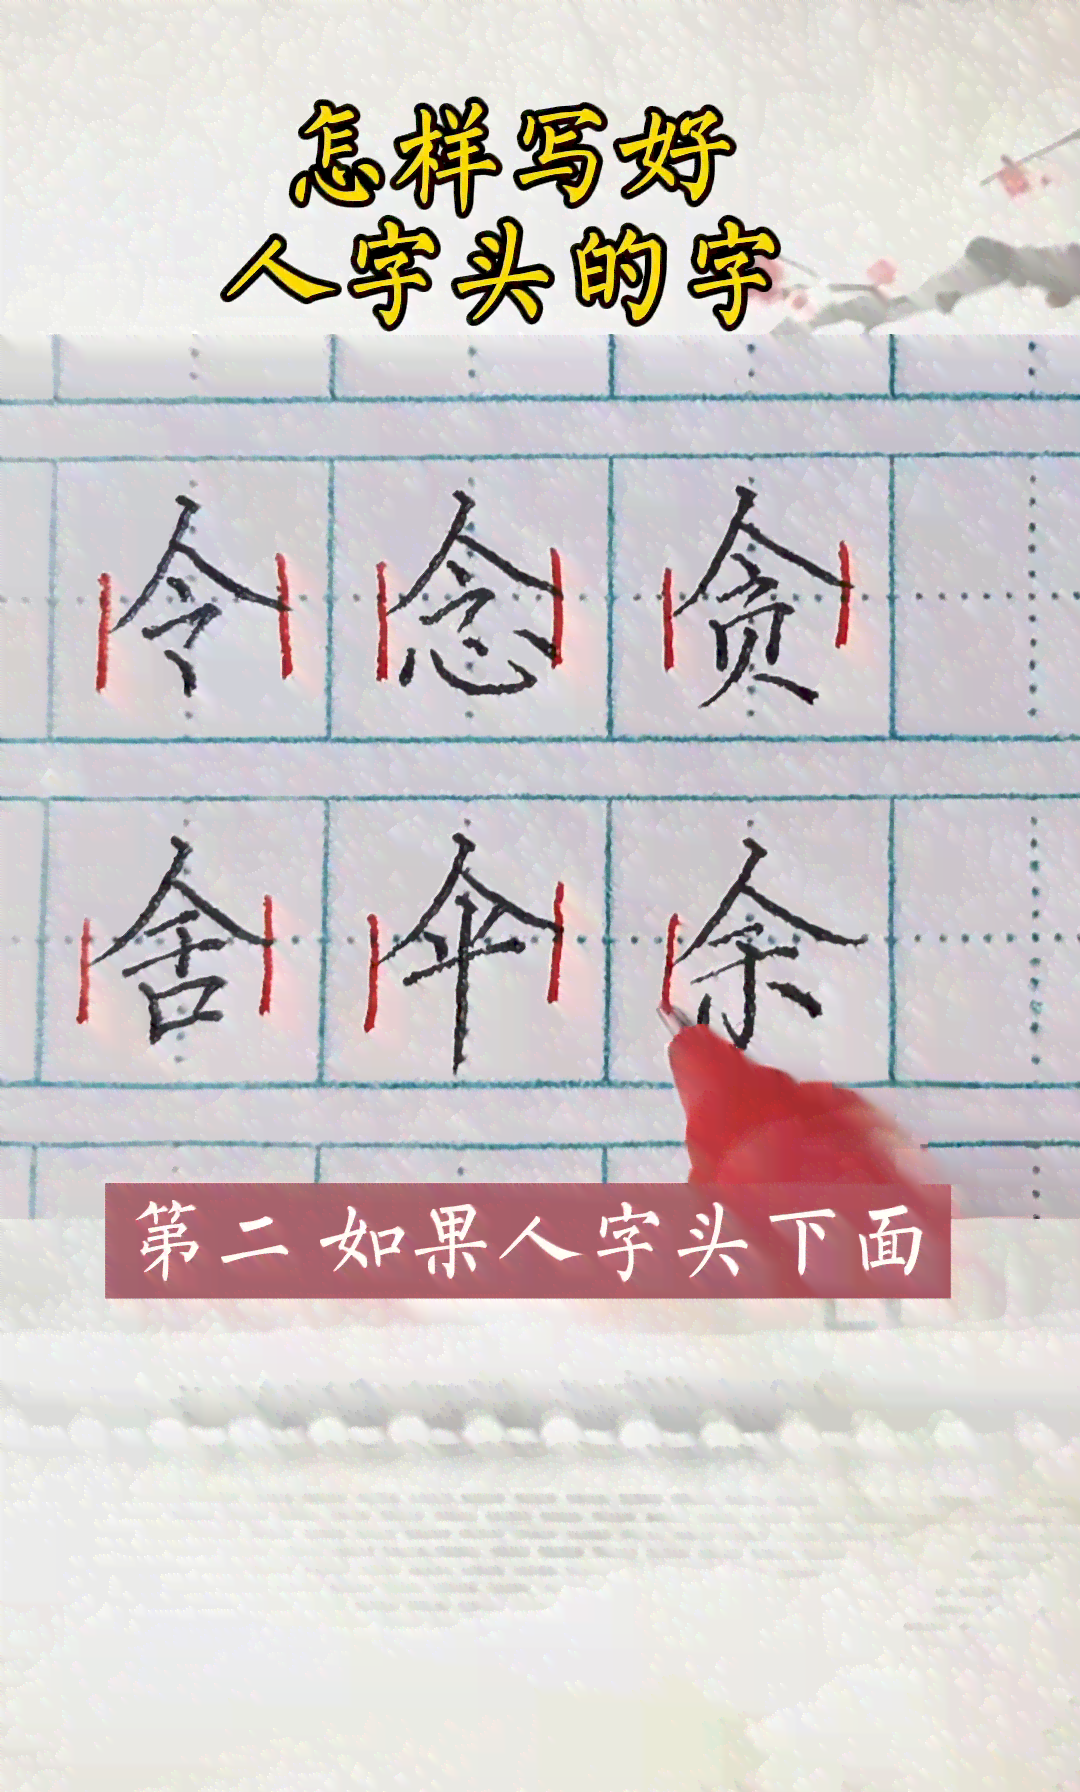 怎样写好
人字头的字
令 念 贪
舍 伞 余
第二 如果人字头下面